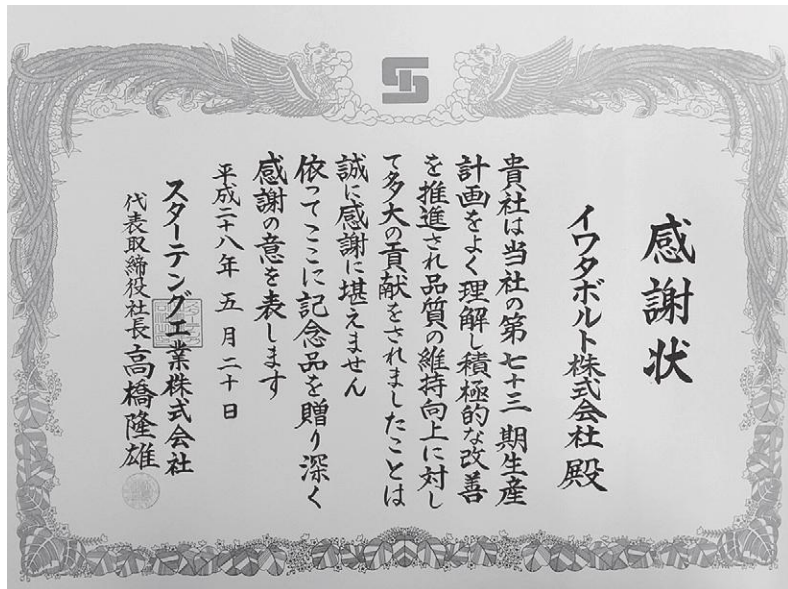 感謝状
イワタボルト株式会社 殿
貴社は当社の第七十三期生産
計画をよく理解し積極的な改善
を推進され品質の維持向上に対し
て多大の貢献をされましたことは
誠に感謝に堪えません
依ってここに記念品を贈り深く
感謝の意を表します
平成二十八年 五月二十日
スターテング工業株式会社
代表取締役社長 高橋隆雄